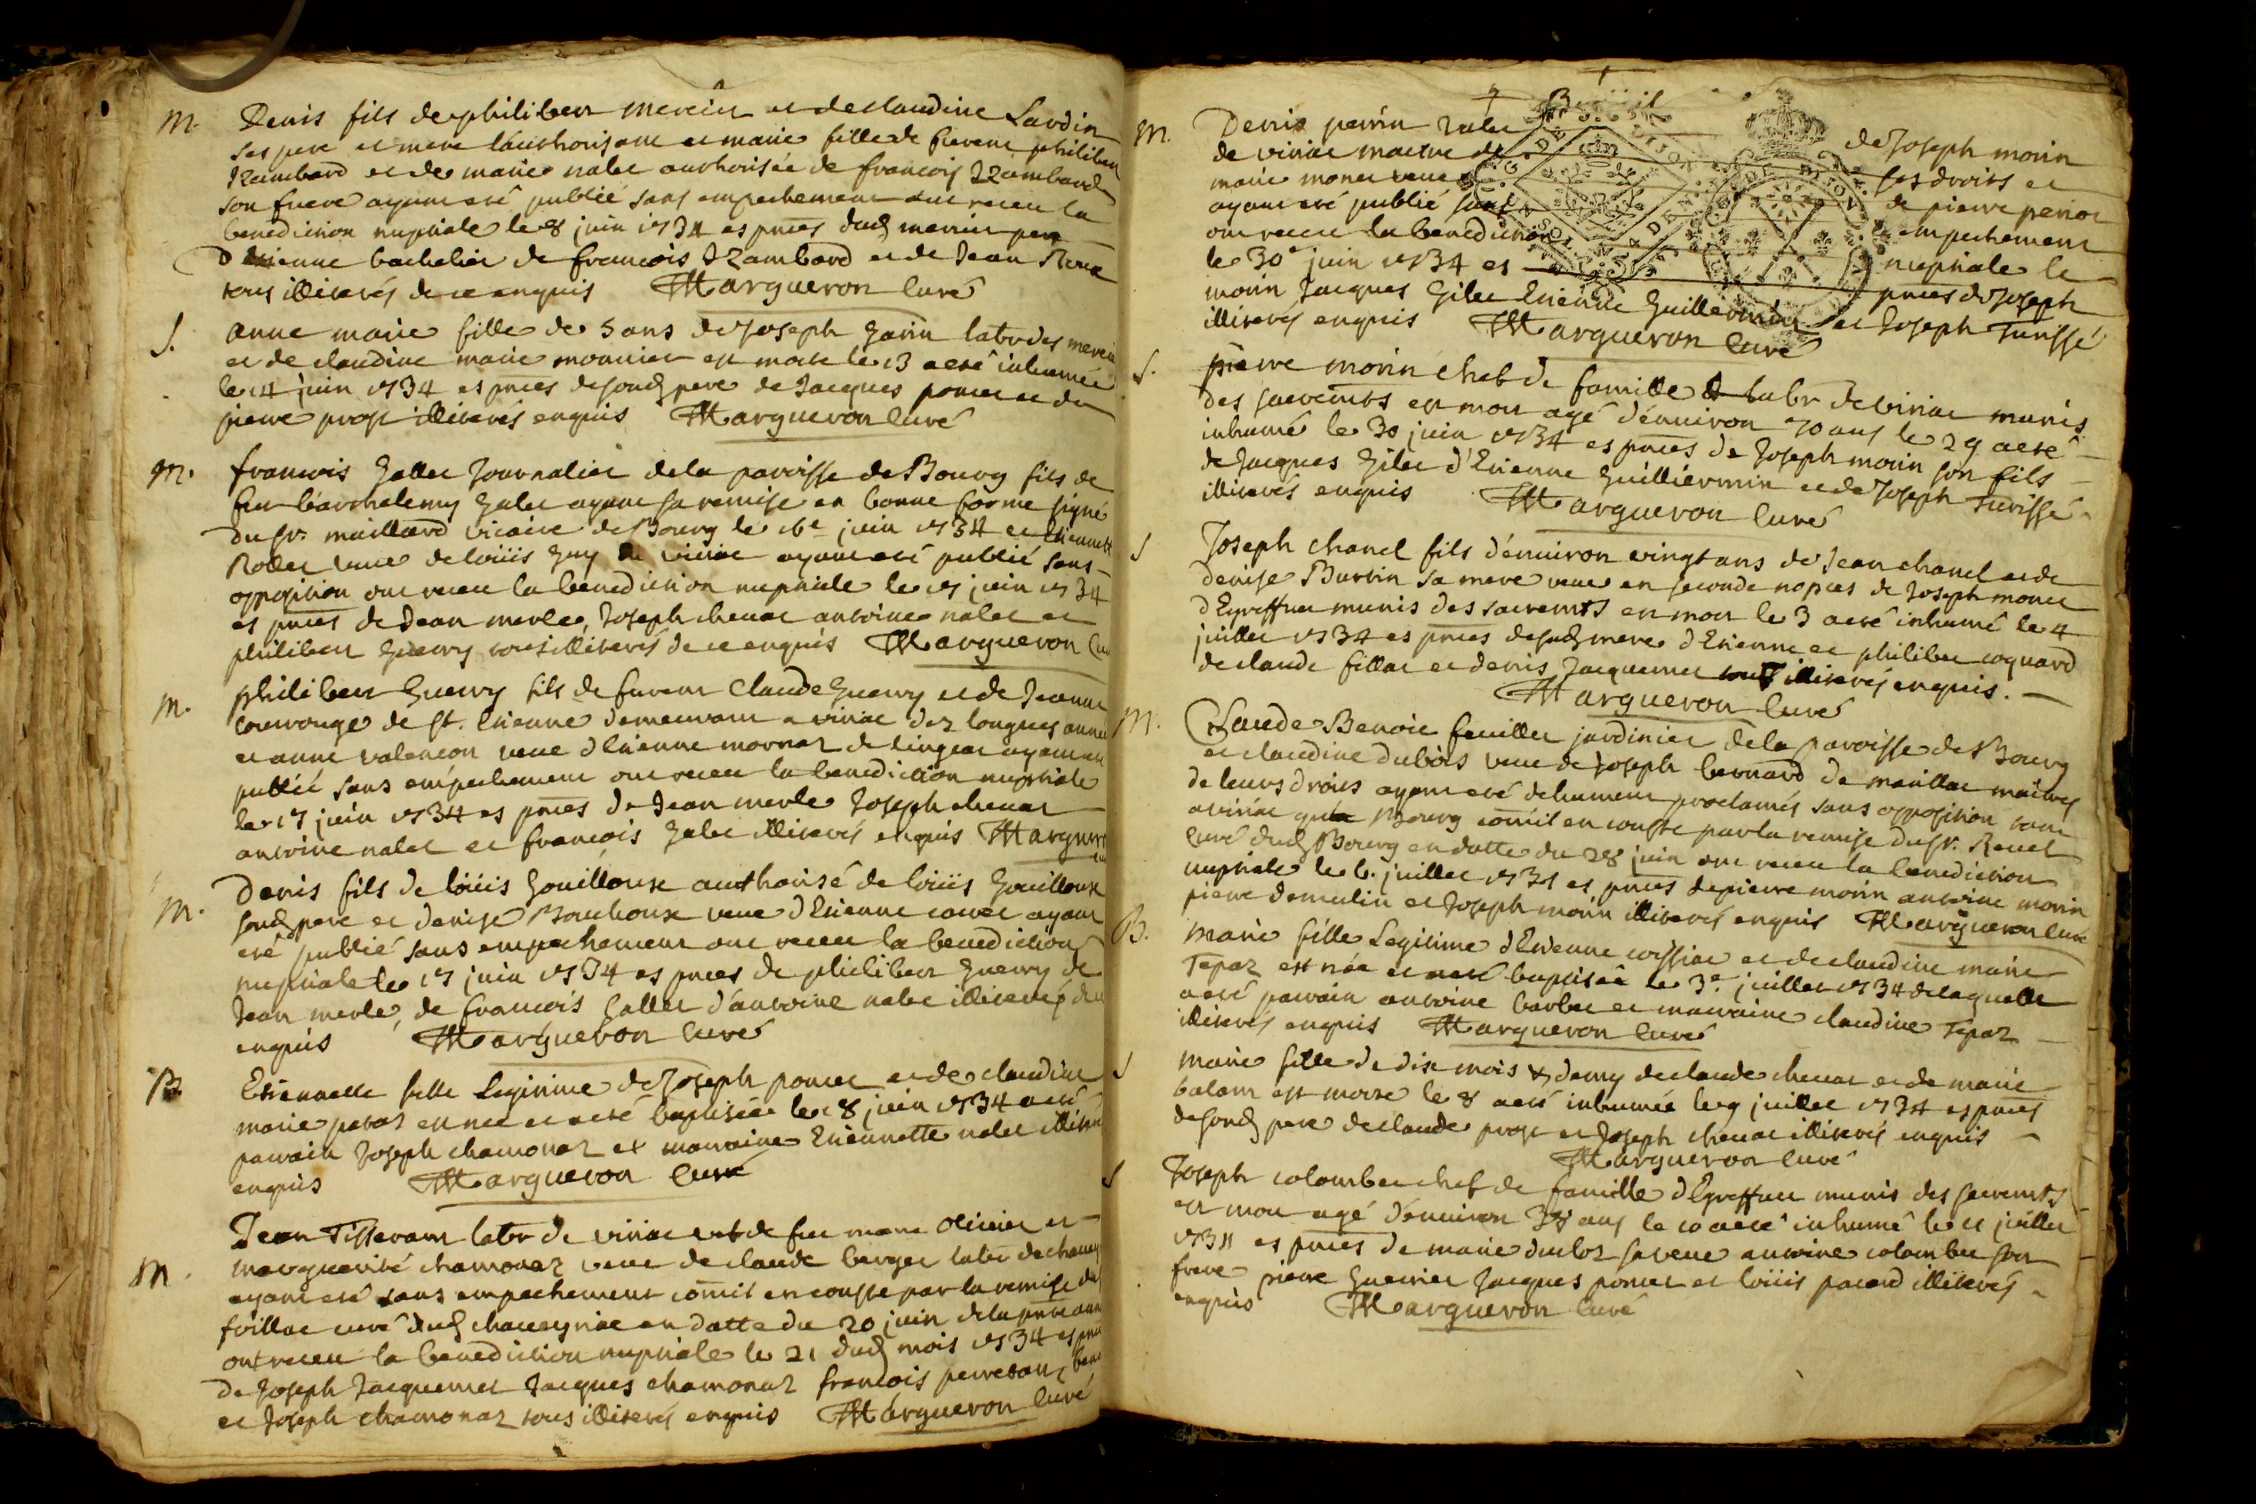 M. Denis fils de philibert mercier et de claudine Sardin
ses pere et mere l'authorisant et marie fille de furent philibert
Izambard et de marie nalet authorisée de francois Izambard
son frere ayant eté publié sans empechement ont receu la
benediction nuptiale le 8 juin 1734 es pnces dud mercier pere
d'etienne bachelier de francois Izambard et de Jean
tous illiterés de ce enquis Margueron Curé
S. anne marie fille de 5 ans de Joseph Garin labr des
et de claudine marie mounier est morte le 13 a eté inhumée
le 14 juin 1734 es pnces desond pere de Jacques poncet et de
pierre prost illiterés enquis Margueron Curé
M. francois Gallet Journalier de la paroisse de Bourg fils de
feu barthelemy Galet ayant sa remise en bonne forme signé
du Sr. maillard vicaire de Bourg le 16e juin 1734 et Etiennette
Rollet veuve de loüis Guy de viriat ayant eté publié sans
opposition ont receu la benediction nuptiale le 17 juin 1734
es pnces de Jean merle, Joseph chenat antoine nalet et
philibert Guerry tous illiterés de ce enquis Margueron
M. philibert Guerry fils de furent Claude Guerry et de Jeanne
couvrouge de St. Etienne demeurant a viriat dez longues années
et anne valencon veuve d'Etienne mornaz de lingeat ayant eté
publié sans empechement ont receu la benediction nuptiale
le 17 juin 1734 es pnces de Jean merle Joseph chenat
antoine nalet et francois Galet illiterés enquis Margueron
M. Denis fils de loüis Gouilloux authorisé de loüis Gouilloux
sond pere et denise Bouchoux veuve d'Etienne ayant
eté publié sans empechement ont receu la benediction
nuptiale le 17 juin 1734 es pnces de philibert Guerry de
Jean merle, de francois Gallet d'antoine nalet illiterés de ce
enquis Margueron Curé
B. Etiennette fille Legitime de Joseph poncet et de claudine
marie est nee et a eté baptisée le 18 juin 1734 a eté
parrain Joseph chamonaz et marraine Etiennette nalet
enquis Margueron Curé
M. Jean Tisserant labr de viriat vef de feu marie olivier et
marguerite chamonaz veuve de claude berger labr de
ayant eté sans empechement comme il en conste par la remise du
foillat curé dud en datte du 20 juin de la pnte année
ont receu la benediction nuptiale le 21 dud mois 1734 es pnces
de Joseph Jacquemet Jacques chamonaz francois
et Joseph chamonaz tous illiterés enquis Margueron Curé
M. Denis perrin valet de Joseph morin
de viriat maitre de ses droits et
marie monet veuve de pierre
ayant eté publié sans empechement
ont receu la benediction nuptiale le
le 30e juin 1734 es pnces de Joseph
morin Jacques Gilet Etienne Guillermin et Joseph Turissé
illiterés enquis Margueron Curé
S. pierre morin chef de famille labr de viriat munis
des sacremts est mort agé d'environ 70 ans le 29 a eté
inhumé le 30 juin 1734 es pnces de Joseph morin son fils
de Jacques Gilet d'Etienne Guilliermin et de Joseph Turissé
illiterés enquis Margueron Curé
S Joseph chanel fils d'environ vingt ans de Jean chanel et de
denise Burtin sa mere veuve en seconde nopces de Joseph monet
d'Egreffnet munis des sacremts est mort le 3 a eté inhumé le 4
juillet 1734 es pnces desad mere d'Etienne et philibert coquard
de claude fillat et denis Jacquemet tous illiterés enquis.
Margueron Curé
M. Claude Benoit feuillet jardinier de la paroisse de Bourg
et claudine dubois veuve de Joseph bernard de marillat maitres
de leurs droits ayant eté dehument proclamés sans opposition tant
a viriat qu'a Bourg comme il en conste par la remise du Sr. Revel
Curé dud Bourg en datte du 28 juin ont receu la benediction
nuptiale le 6. juillet 1734 es pnces de pierre morin antoine morin
pierre demulin et Joseph morin illiterés enquis Margueron Curé
B. Marie fille Legitime d'Etienne et de claudine marie
Tepaz est née et a eté baptisée le 3e juillet 1734 de laquelle
a eté parrain antoine barbet et marraine claudine Tepaz
illiterés enquis Margueron Curé
S marie fille de dix mois & demy de claude chenat et de marie
balant est morte le 8 a eté inhumée le 9 juillet 1734 es pnces
desond pere de claude prost et Joseph chenat illiterés enquis
Margueron Curé
S Joseph colombet chef de famille d'Egreffnet munis des sacremts
est mort agé d'environ ans le 10 a eté inhumé le 11 juillet
1734 es pnces de marie duclos sa veuve antoine colombet son
frere pierre Guerrier Jacques poncet et loüis pacard illiterés
enquis Margueron Curé